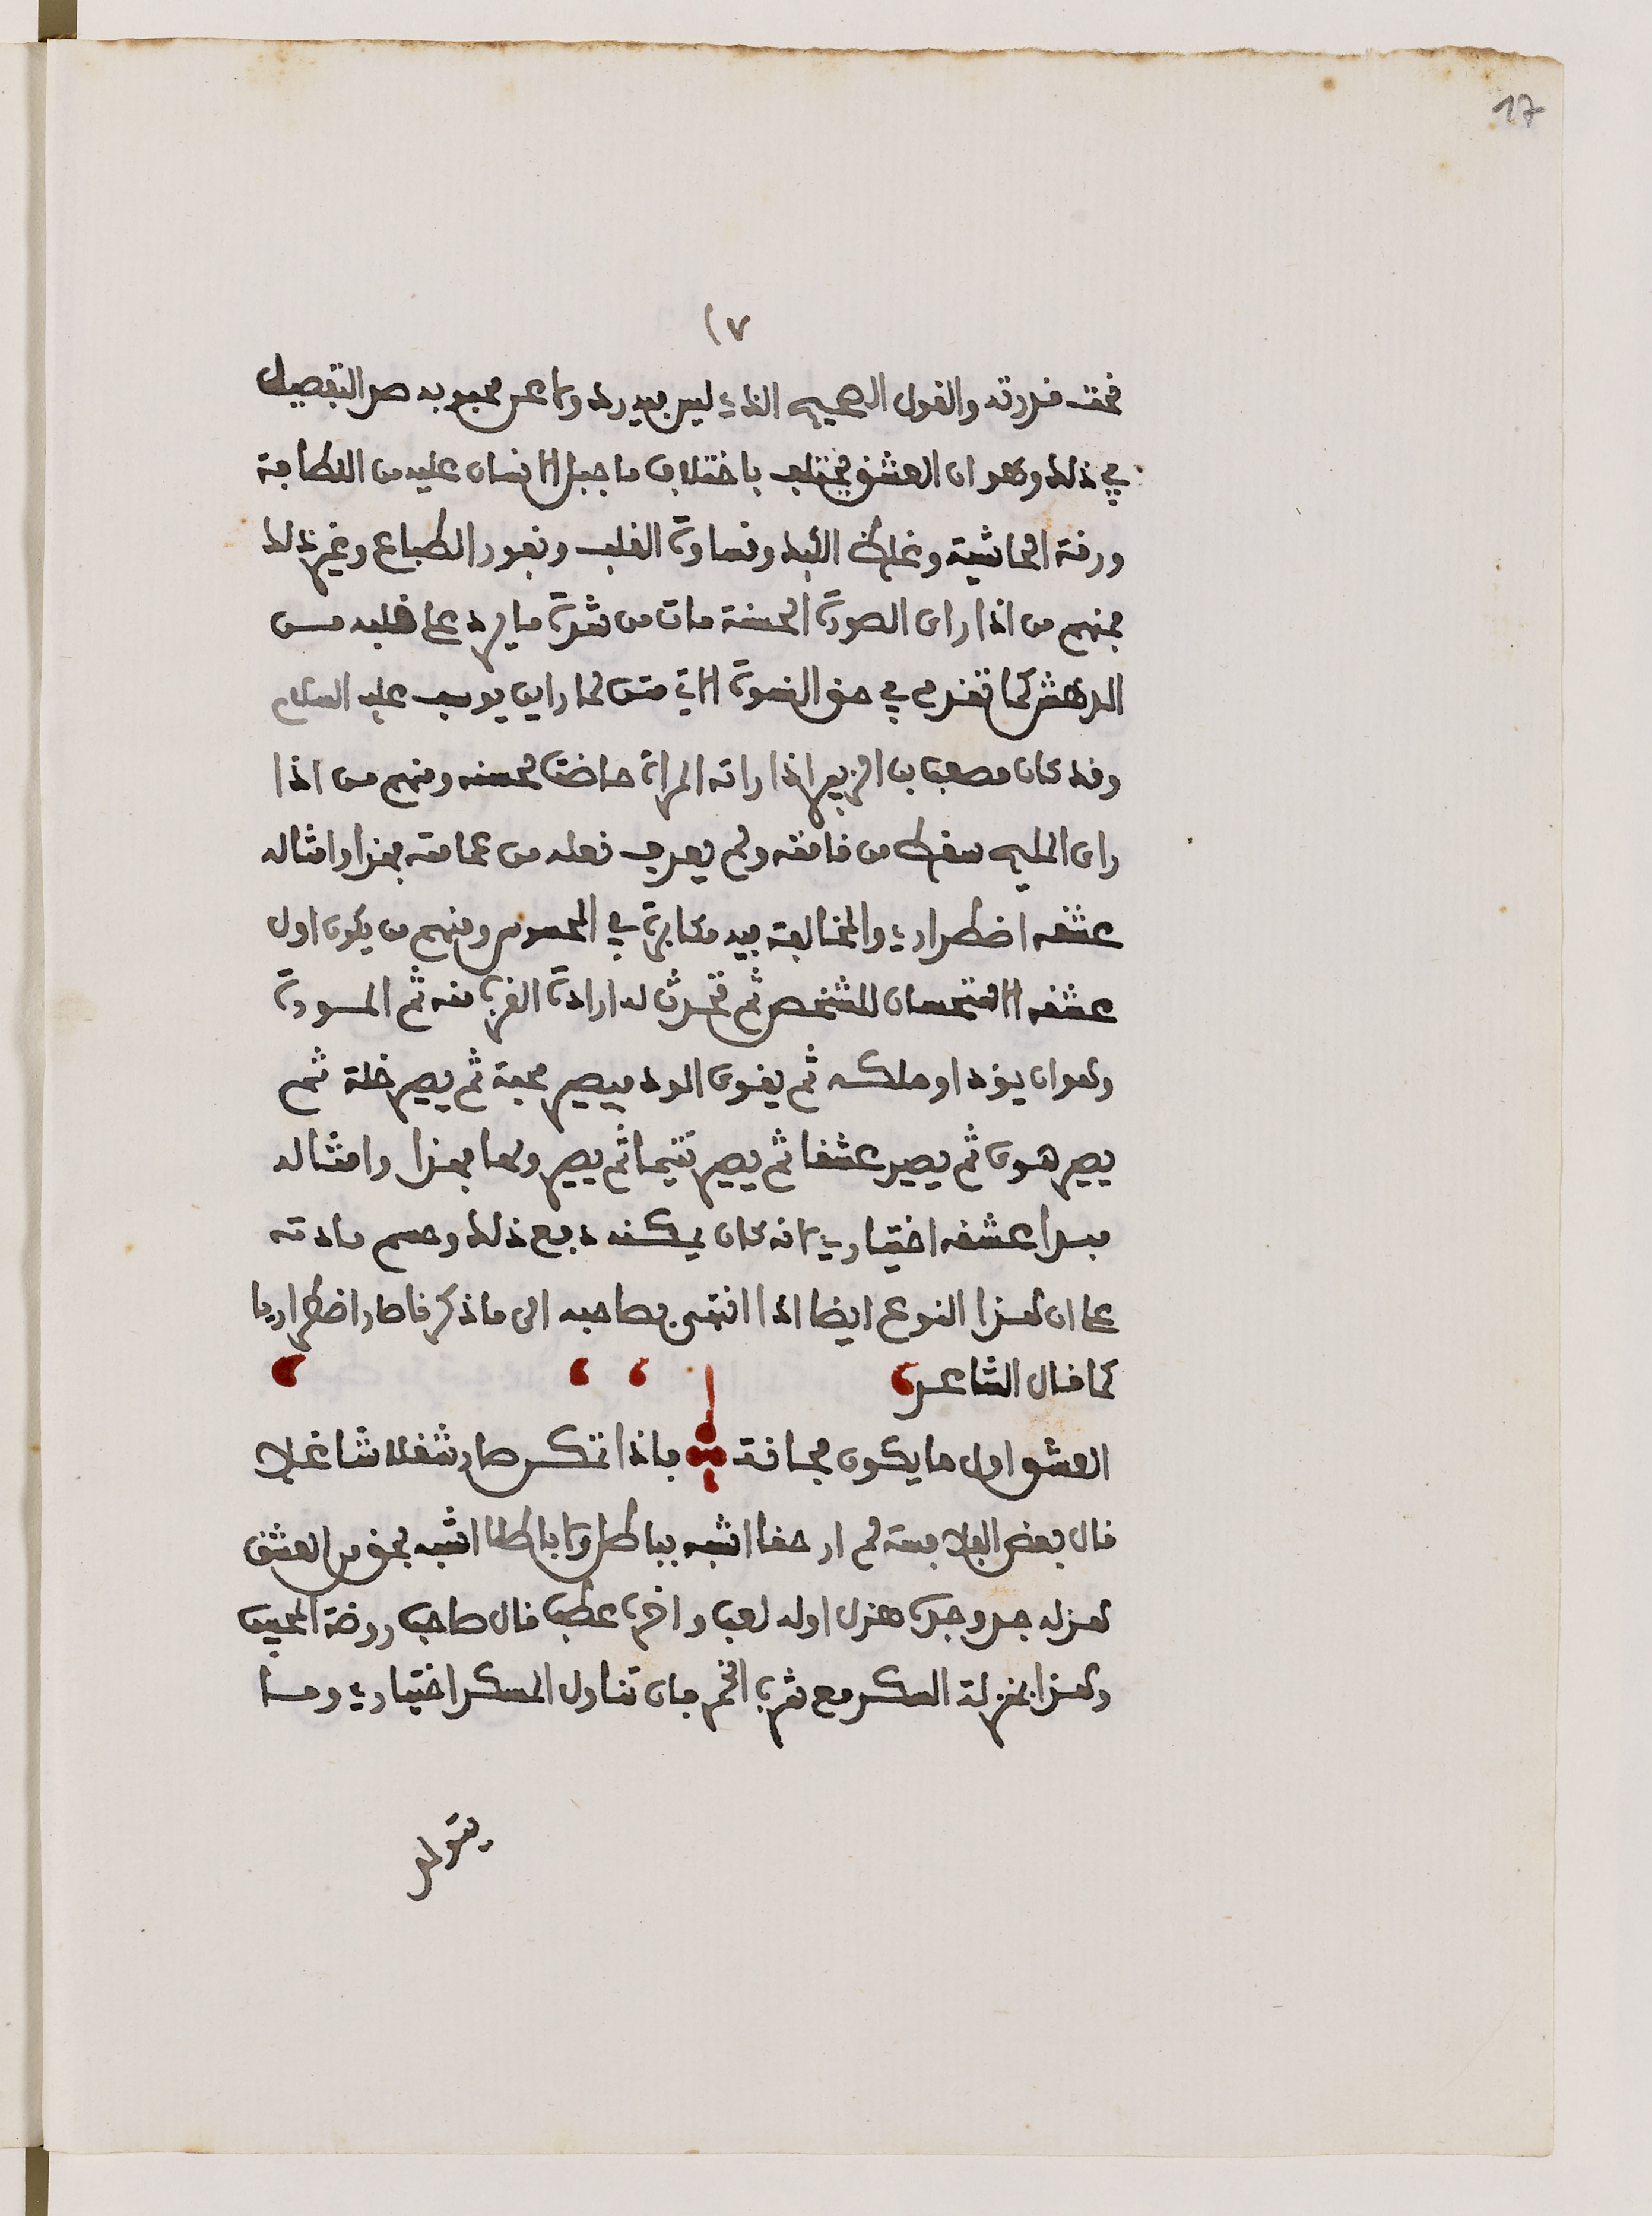 17
١٧
تحت قدرته والقول الصحيح الذي ليس فيه رد ولا عن محبوبه صد التفصيل
في ذلك وهو ان العشق يختلف باختلاف ما جبل الانسان عليه من اللطافة
ورقة الحاشية وغلظ الكبد وقساوة القلب ونفور الطباع وغير ذلك
فمنهم من اذا راى الصورة الحسنة مات من شدة ما يرد على قلبه من
الدهش كما تقدم في حق النسوة الاتي متن لما راين يوسف عليه السلام
وقد كان مصعب بن الزبير اذا راته المراة حاضت لحسنه ومنهم من اذا
راى المليح سقط من قامته ولم يعرف نعله من عمامته فهذا وامثاله
عشقه اضطراري والمخالفة فيه مكابرة في المحسوس ومنهم من يكون اول
عشقه الاستحسان للشخص ثم تحدث له ارادة القرب منه ثم المودة
وهو ان يود لو ملكه ثم يقوى الود فيصير محبة ثم يصير خلة ثم
يصير هوى ثم يصير عشقا ثم يصير تتيما ثم يصير ولها فهذا وامثاله
مبدا عشقه اختياري لانه كان يمكنه دفع ذلك وحسم مادته
على ان هذا النوع ايضا اذا انتهى بصاحبه الى ما ذكرنا صار اضطراريا
كما قال الشاعر
العشق اول ما يكون مجانة فاذا تمكن صار شغلا شاغلا
قال بعض الفلاسفة لم ار حقا اشبه بباطل ولا باطلا اشبه بحق من العشق
هزله جد وجده هزل اوله لعب واخره عطب قال صاحب روضة المحبين
وهذا بمنزلة السكر مع شرب الخمر فان تناول المسكر اختياري وما
يتولد